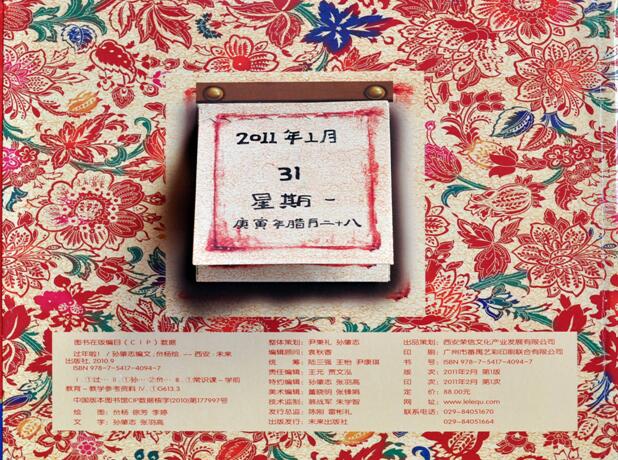 2011年1月
31
星期一
庚寅年腊月二十八
图书在版编目(CIP)数据
过年啦!/孙肇志编文;贠杨绘. -- 西安:未来
出版社, 2010.9
ISBN 978-7-5417-4094-7
Ⅰ.①过… Ⅱ.①孙… ②贠… Ⅲ.①常识课-学前
教育-教学参考资料 Ⅳ.①G613.3
中国版本图书馆CIP数据核字(2010)第177997号
绘 图: 贠杨 徐芳 李婷
文 字: 孙肇志 张羽高
整体策划: 尹秉礼 孙肇志
编辑顾问: 袁秋香
统 筹: 陆三强 王怡 尹康琪
责任编辑: 王元 贾文泓
特约编辑: 孙肇志 张羽高
美术编辑: 董晓明 张锦娟
技术监制: 韩战军 宋学智
发行总监: 陈刚 雷彬礼
出版发行: 未来出版社
出品策划: 西安荣信文化产业发展有限公司
印 刷: 广州市番禺艺彩印刷联合有限公司
书 号: ISBN 978-7-5417-4094-7
版 次: 2011年2月 第1版
印 次: 2011年2月 第1次
定 价: 88.00元
网 址: www.lelequ.com
联系电话: 029-84051670
029-84051664